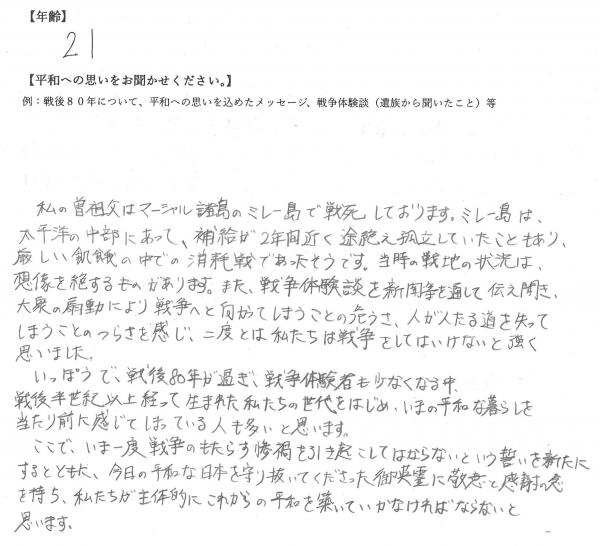 【年齢】
21
【平和への思いをお聞かせください。】
例：戦後８０年について、平和への思いを込めたメッセージ、戦争体験談（遺族から聞いたこと）等
私の曽祖父はマーシャル諸島のミレー島で戦死しております。ミレー島は、
太平洋の中部にあって、補給が2年間近く途絶え孤立していたこともあり、
厳しい飢餓の中での消耗戦であったそうです。当時の戦地の状況は、
想像を絶するものがあります。また、戦争体験談を新聞等を通して伝え聞き、
大衆の扇動により戦争へと向かってしまうことの危うさ、人が人たる道を失って
しまうことのつらさを感じ、二度とは私たちは戦争をしてはいけないと強く
思いました。
いっぽうで、戦後80年が過ぎ、戦争体験者も少なくなる中、
戦後半世紀以上経って生まれた私たちの世代をはじめ、いまの平和な暮らしを
当たり前に感じてしまっている人も多いと思います。
ここで、いま一度戦争のもたらす惨禍を引き起こしてはならないという誓いを新たに
するとともに、今日の平和な日本を守り抜いてくださった御英霊に敬意と感謝の念
を持ち、私たちが主体的にこれからの平和を築いていかなければならないと
思います。